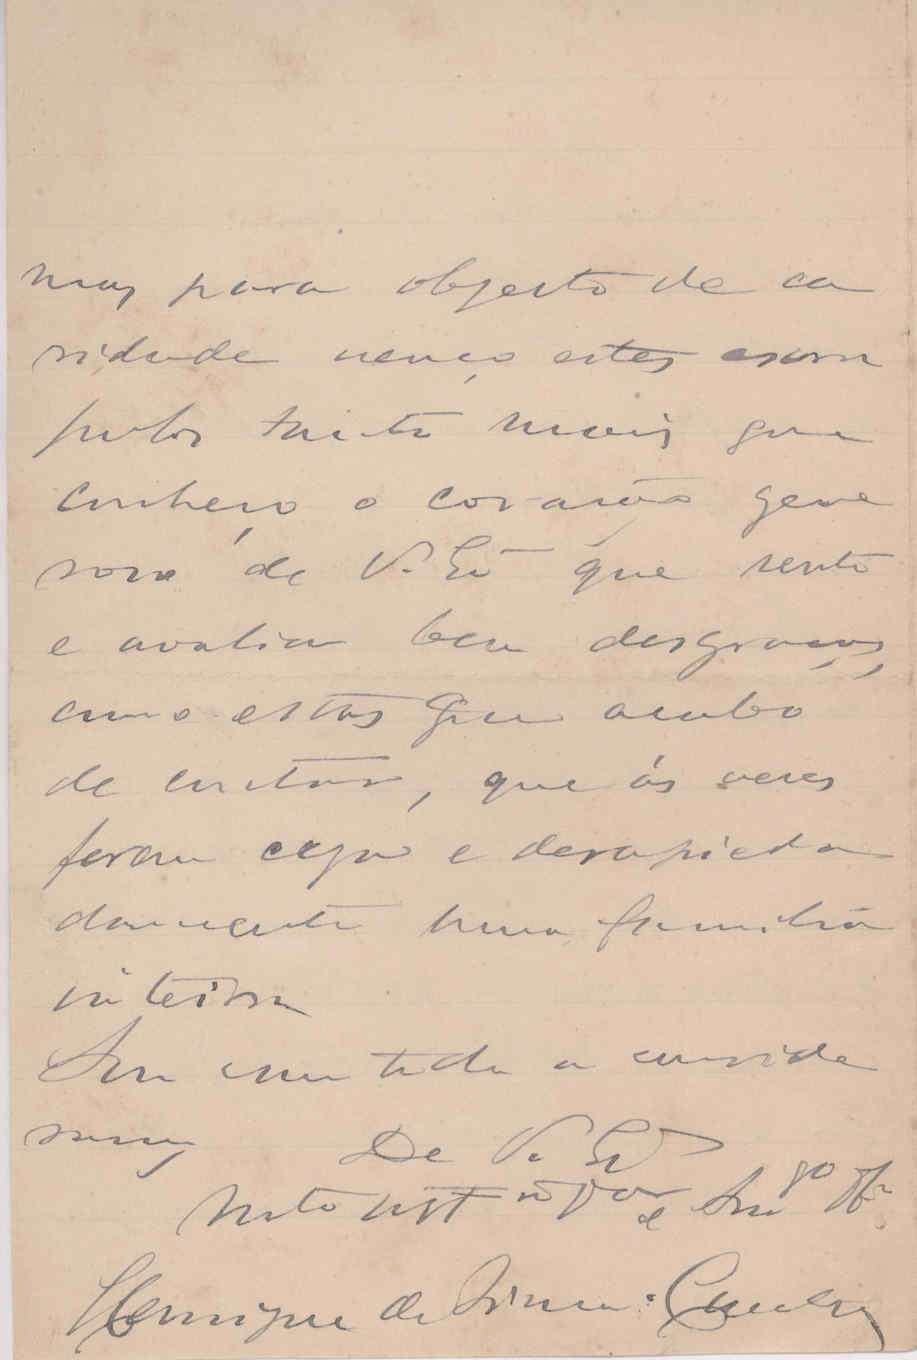 mas para objecto de ca
ridade venço estes escru
pulos tanto mais que
conheço o coração gene
roso de V. Exª que sente
e avalia bem desgraças,
como estas que acabo
de contar, que ás vezes
ferem cega e desapieda
damente uma familia
inteira
Sou com toda a conside
ração De V. Exª
Mto e Amgo
Henrique de Cunha